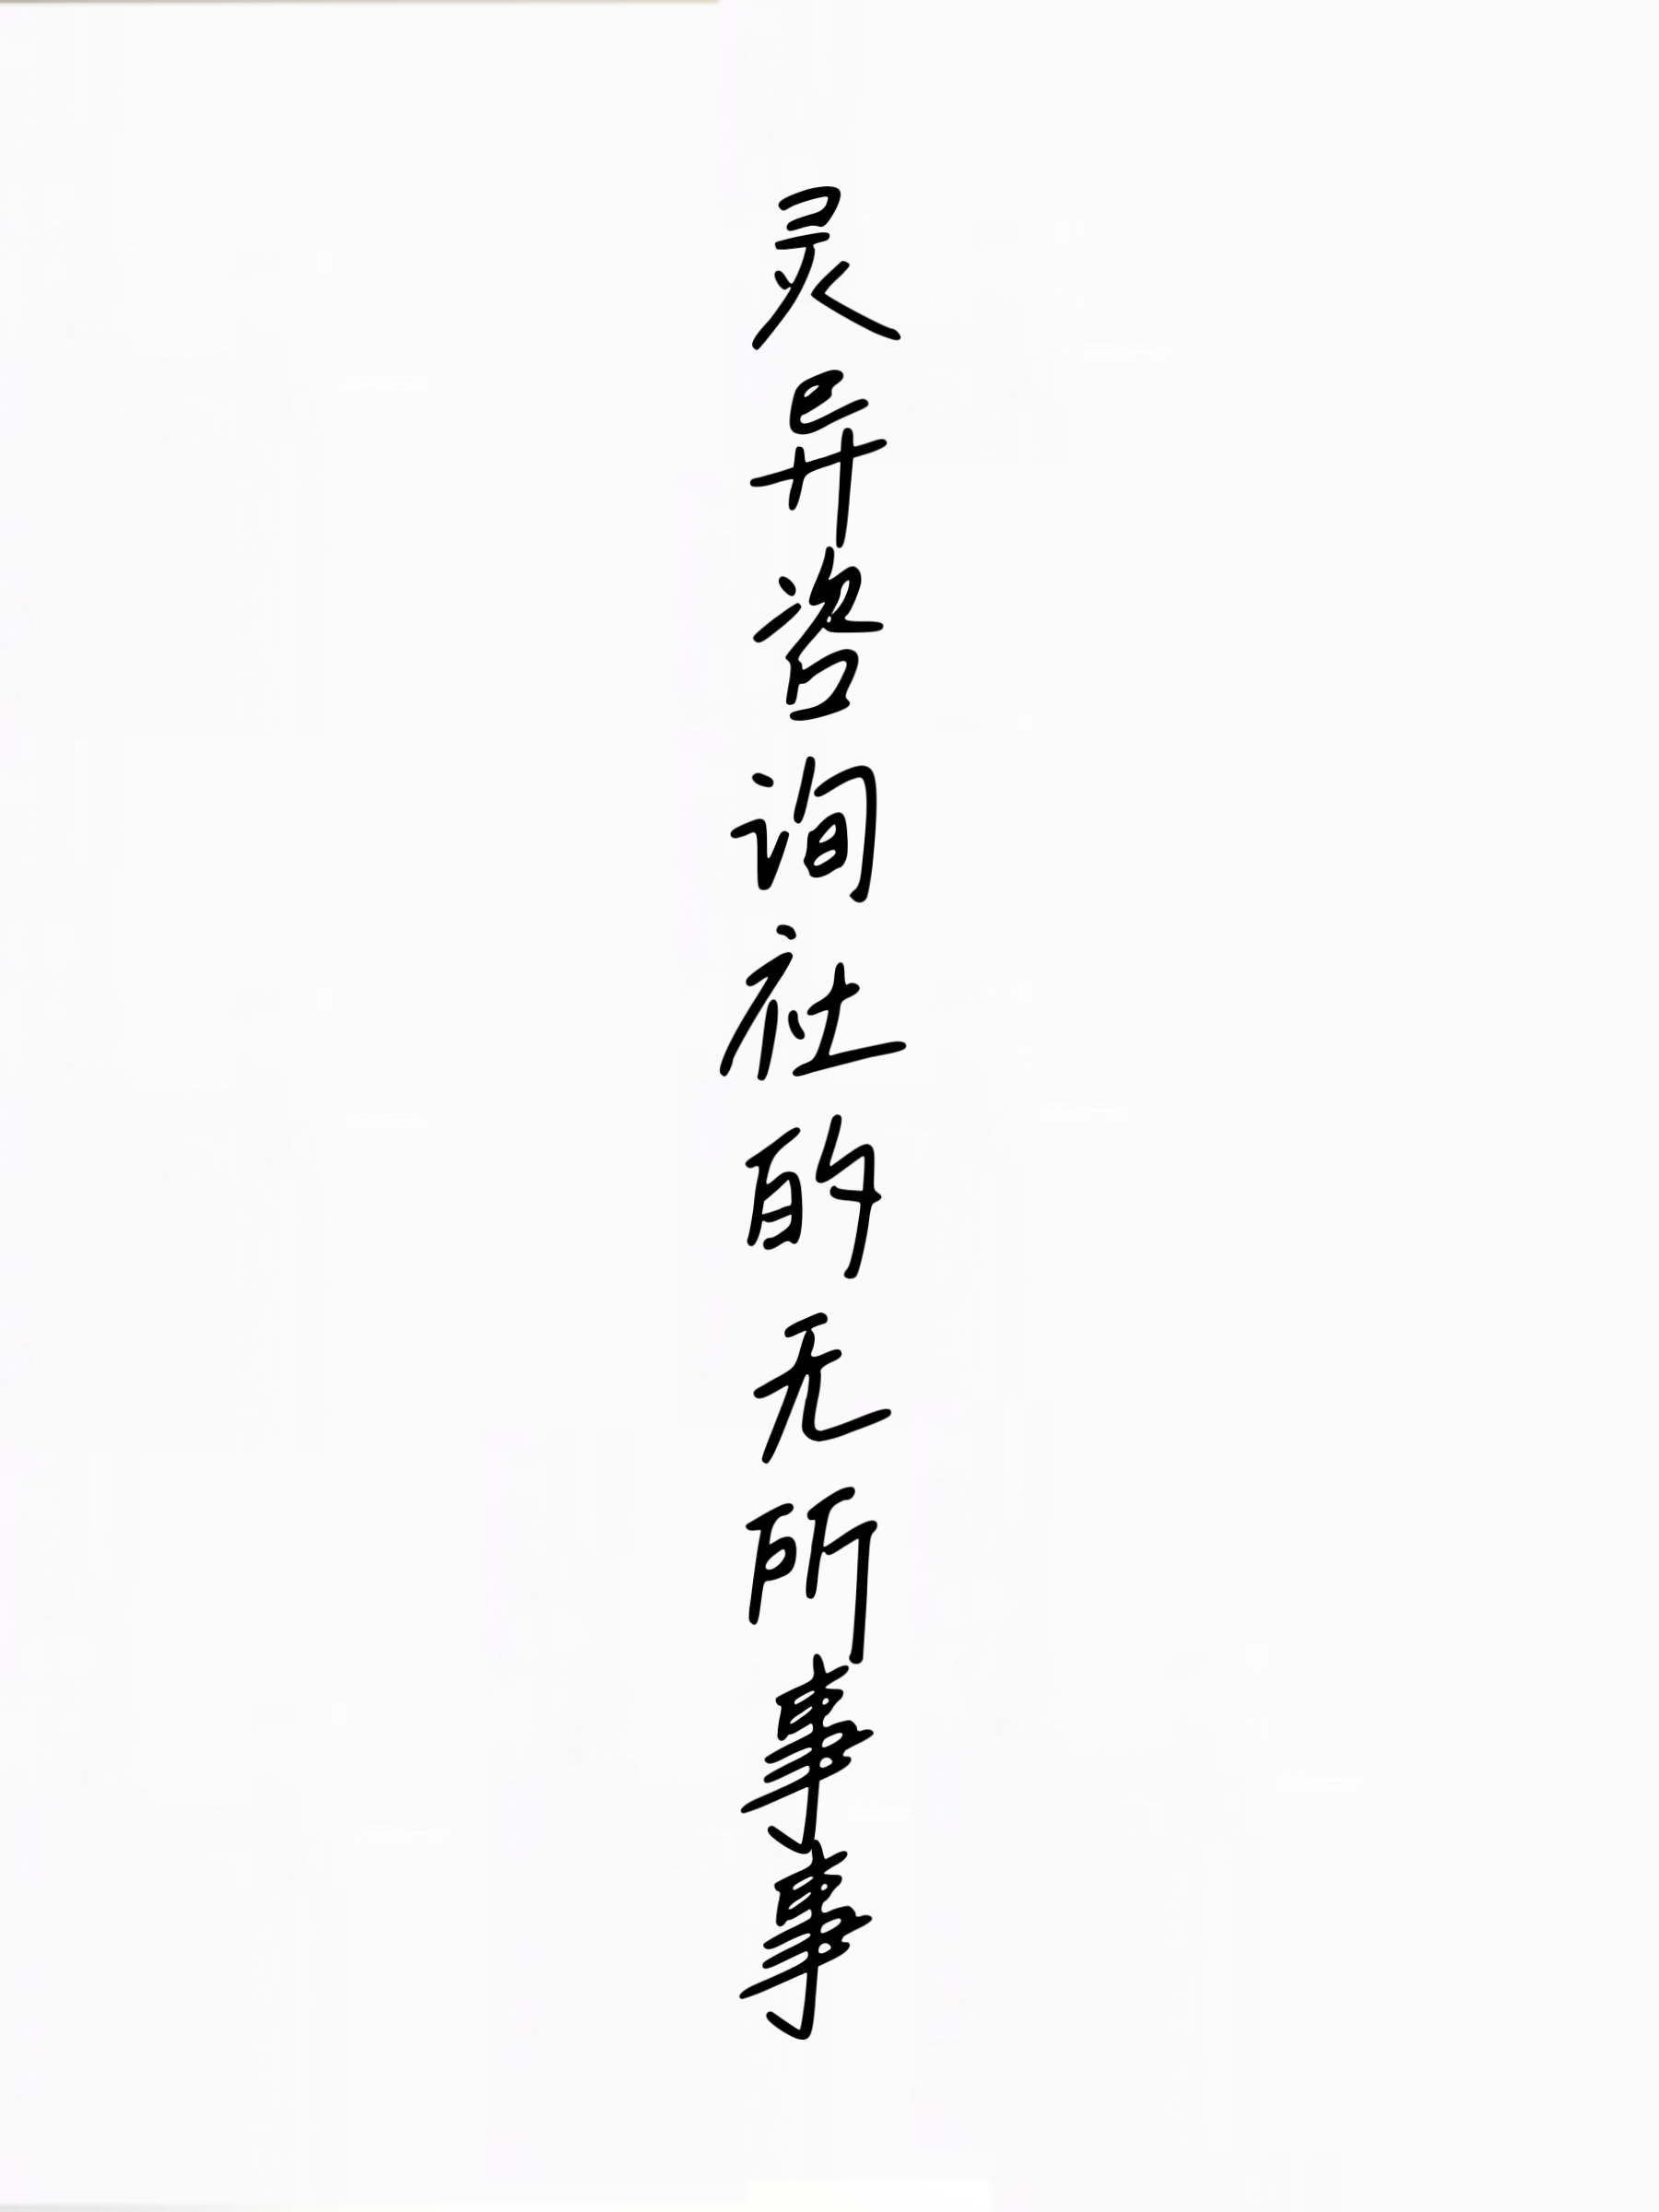 灵异咨询社的无所事事